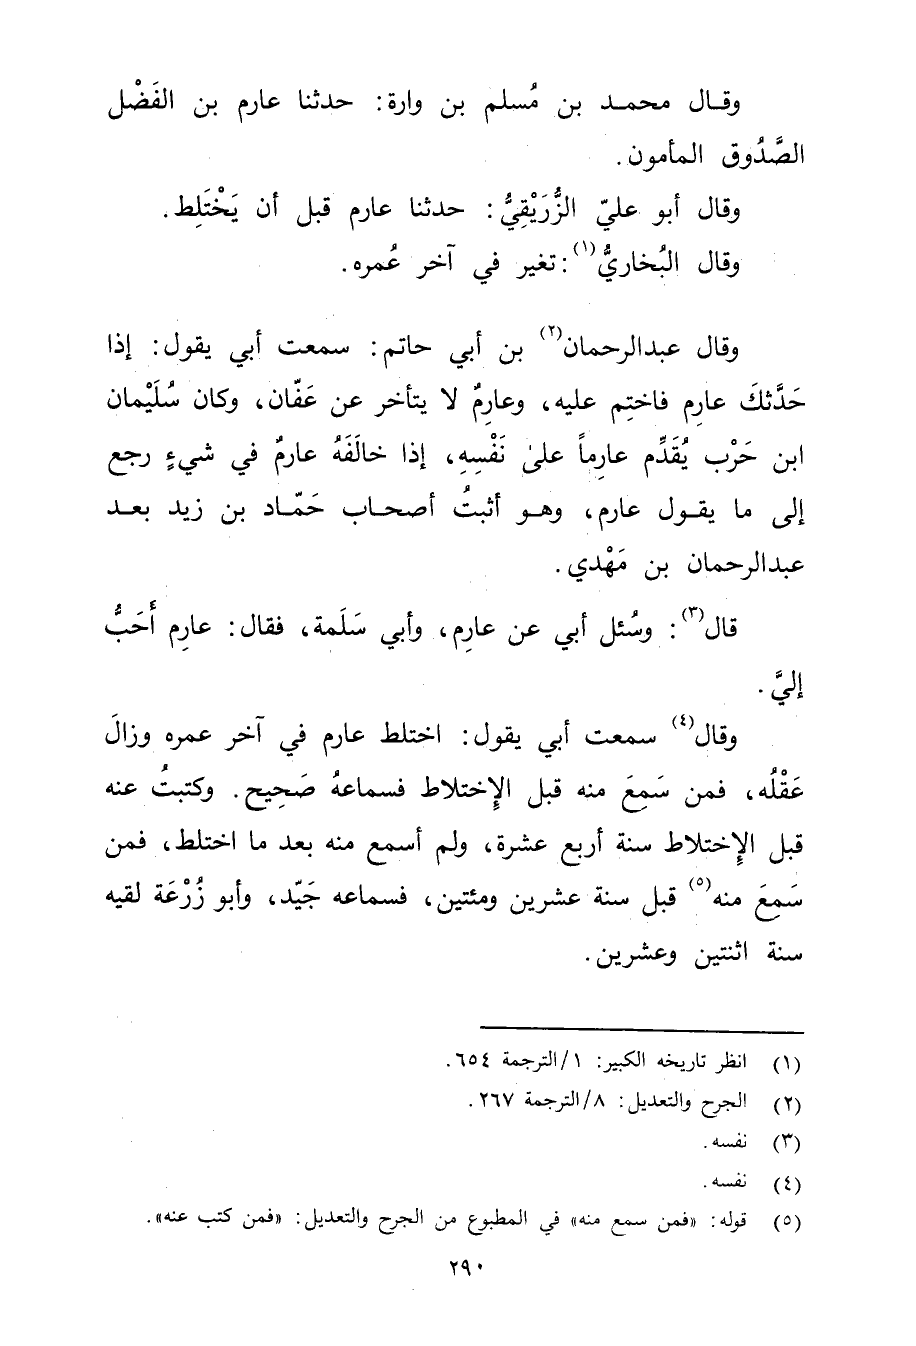 وقال محمد بن مُسلم بن وارة: حدثنا عارم بن الفَضْل
الصَّدُوق المأمون.
وقال أبو عليّ الزُّرَيْقِيُّ: حدثنا عارم قبل أن يَخْتَلِط.
وقال البُخاريُّ(١): تغير في آخر عُمره.
وقال عبدالرحمان(٢) بن أبي حاتم: سمعت أبي يقول: إذا
حَدَّثكَ عارِم فاختِم عليه، وعارِمٌ لا يتأخر عن عَفّان، وكان سُلَيْمان
ابن حَرْب يُقَدِّم عارِماً علىٰ نَفْسِهِ، إذا خالَفَهُ عارمٌ في شيءٍ رجع
إلى ما يقول عارم، وهو أثبتُ أصحاب حَمّاد بن زيد بعد
عبدالرحمان بن مَهْدي.
قال(٣): وسُئل أبي عن عارِم، وأبي سَلَمة، فقال: عارِم أَحَبُّ
إليَّ.
وقال(٤) سمعت أبي يقول: اختلط عارِم في آخر عمره وزالَ
عَقْلُه، فمن سَمِعَ منه قبل الإختلاط فسماعهُ صَحِيح. وكتبتُ عنه
قبل الإختلاط سنة أربع عشرة، ولم أسمع منه بعد ما اختلط، فمن
سَمِعَ منه(٥) قبل سنة عشرين ومئتين، فسماعه جَيّد، وأبو زُرْعَة لقيه
سنة اثنتين وعشرين.
(١) انظر تاريخه الكبير: ١/الترجمة ٦٥٤.
(٢) الجرح والتعديل: ٨/الترجمة ٢٦٧.
(٣) نفسه.
(٤) نفسه.
(٥) قوله: «فمن سمع منه» في المطبوع من الجرح والتعديل: «فمن كتب عنه».
٢٩٠